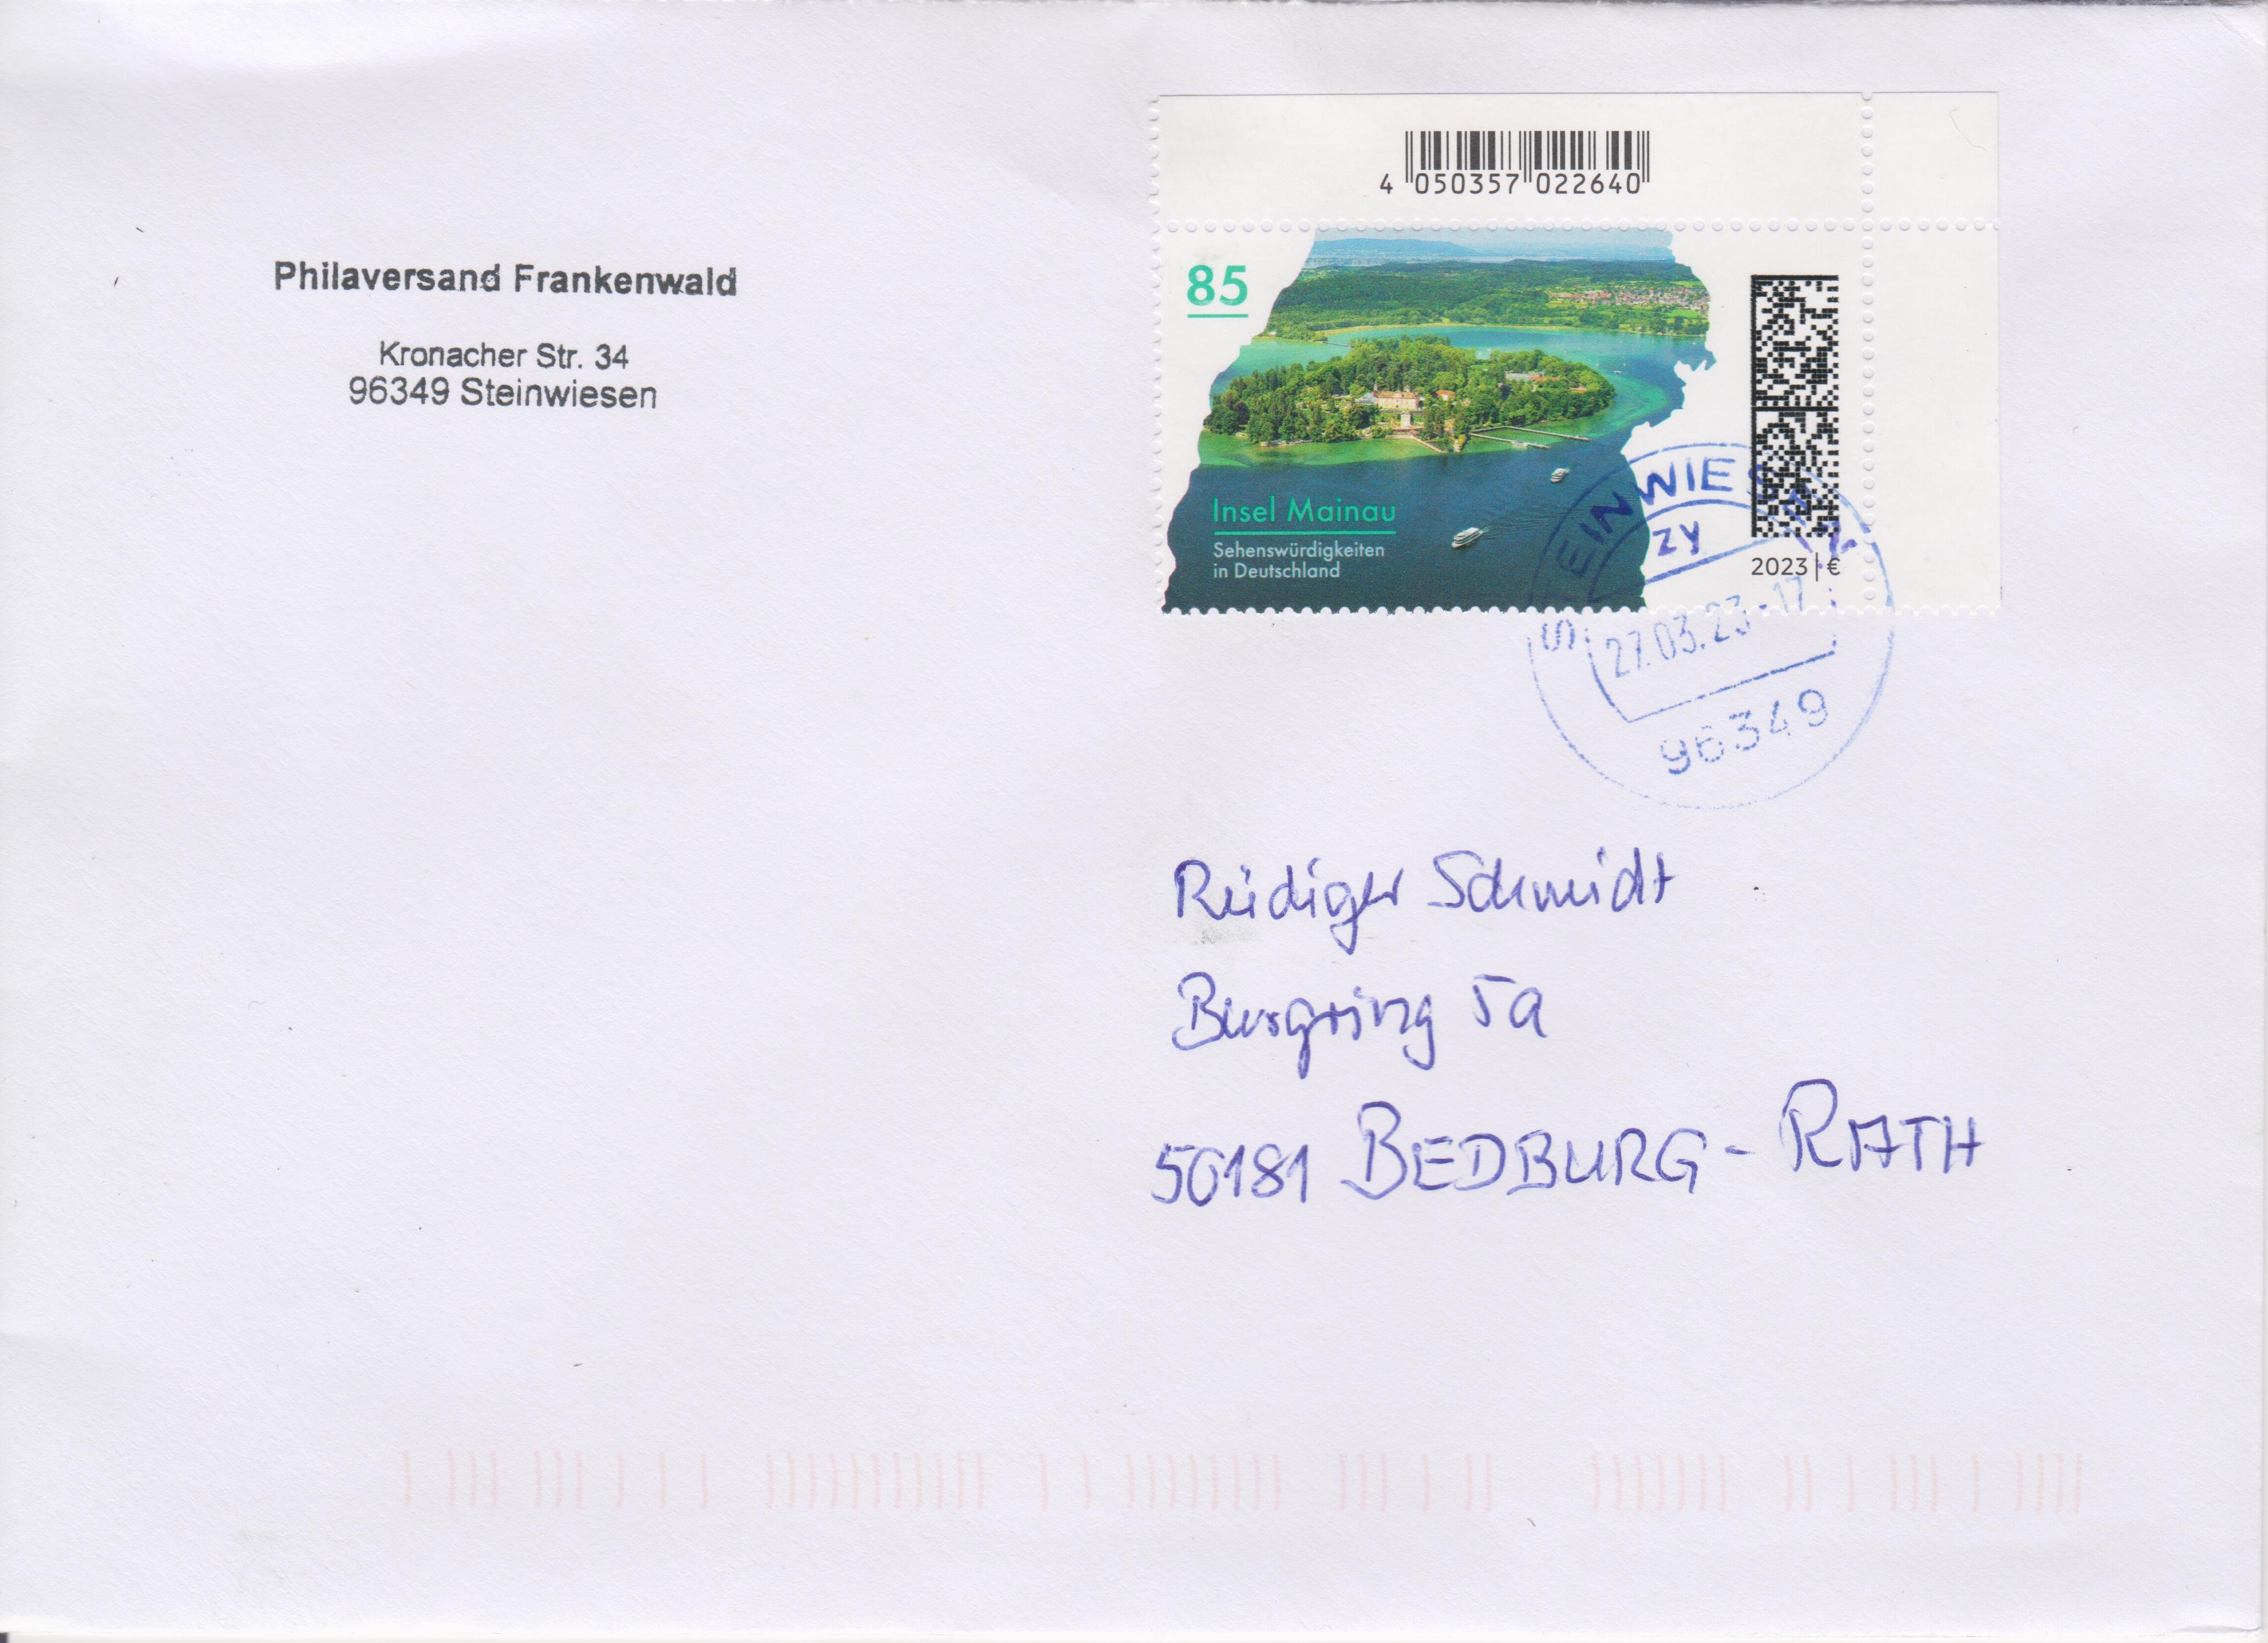 Philaversand Frankenwald
Kronacher Str. 34
96349 Steinwiesen
4 050357 022640
85
Insel Mainau
Sehenswürdigkeiten
in Deutschland
2023 | €
STEINWIESEN
ZY
27.03.23-17
96349
Rüdiger Schmidt
Burgring 5a
50181 BEDBURG-RATH